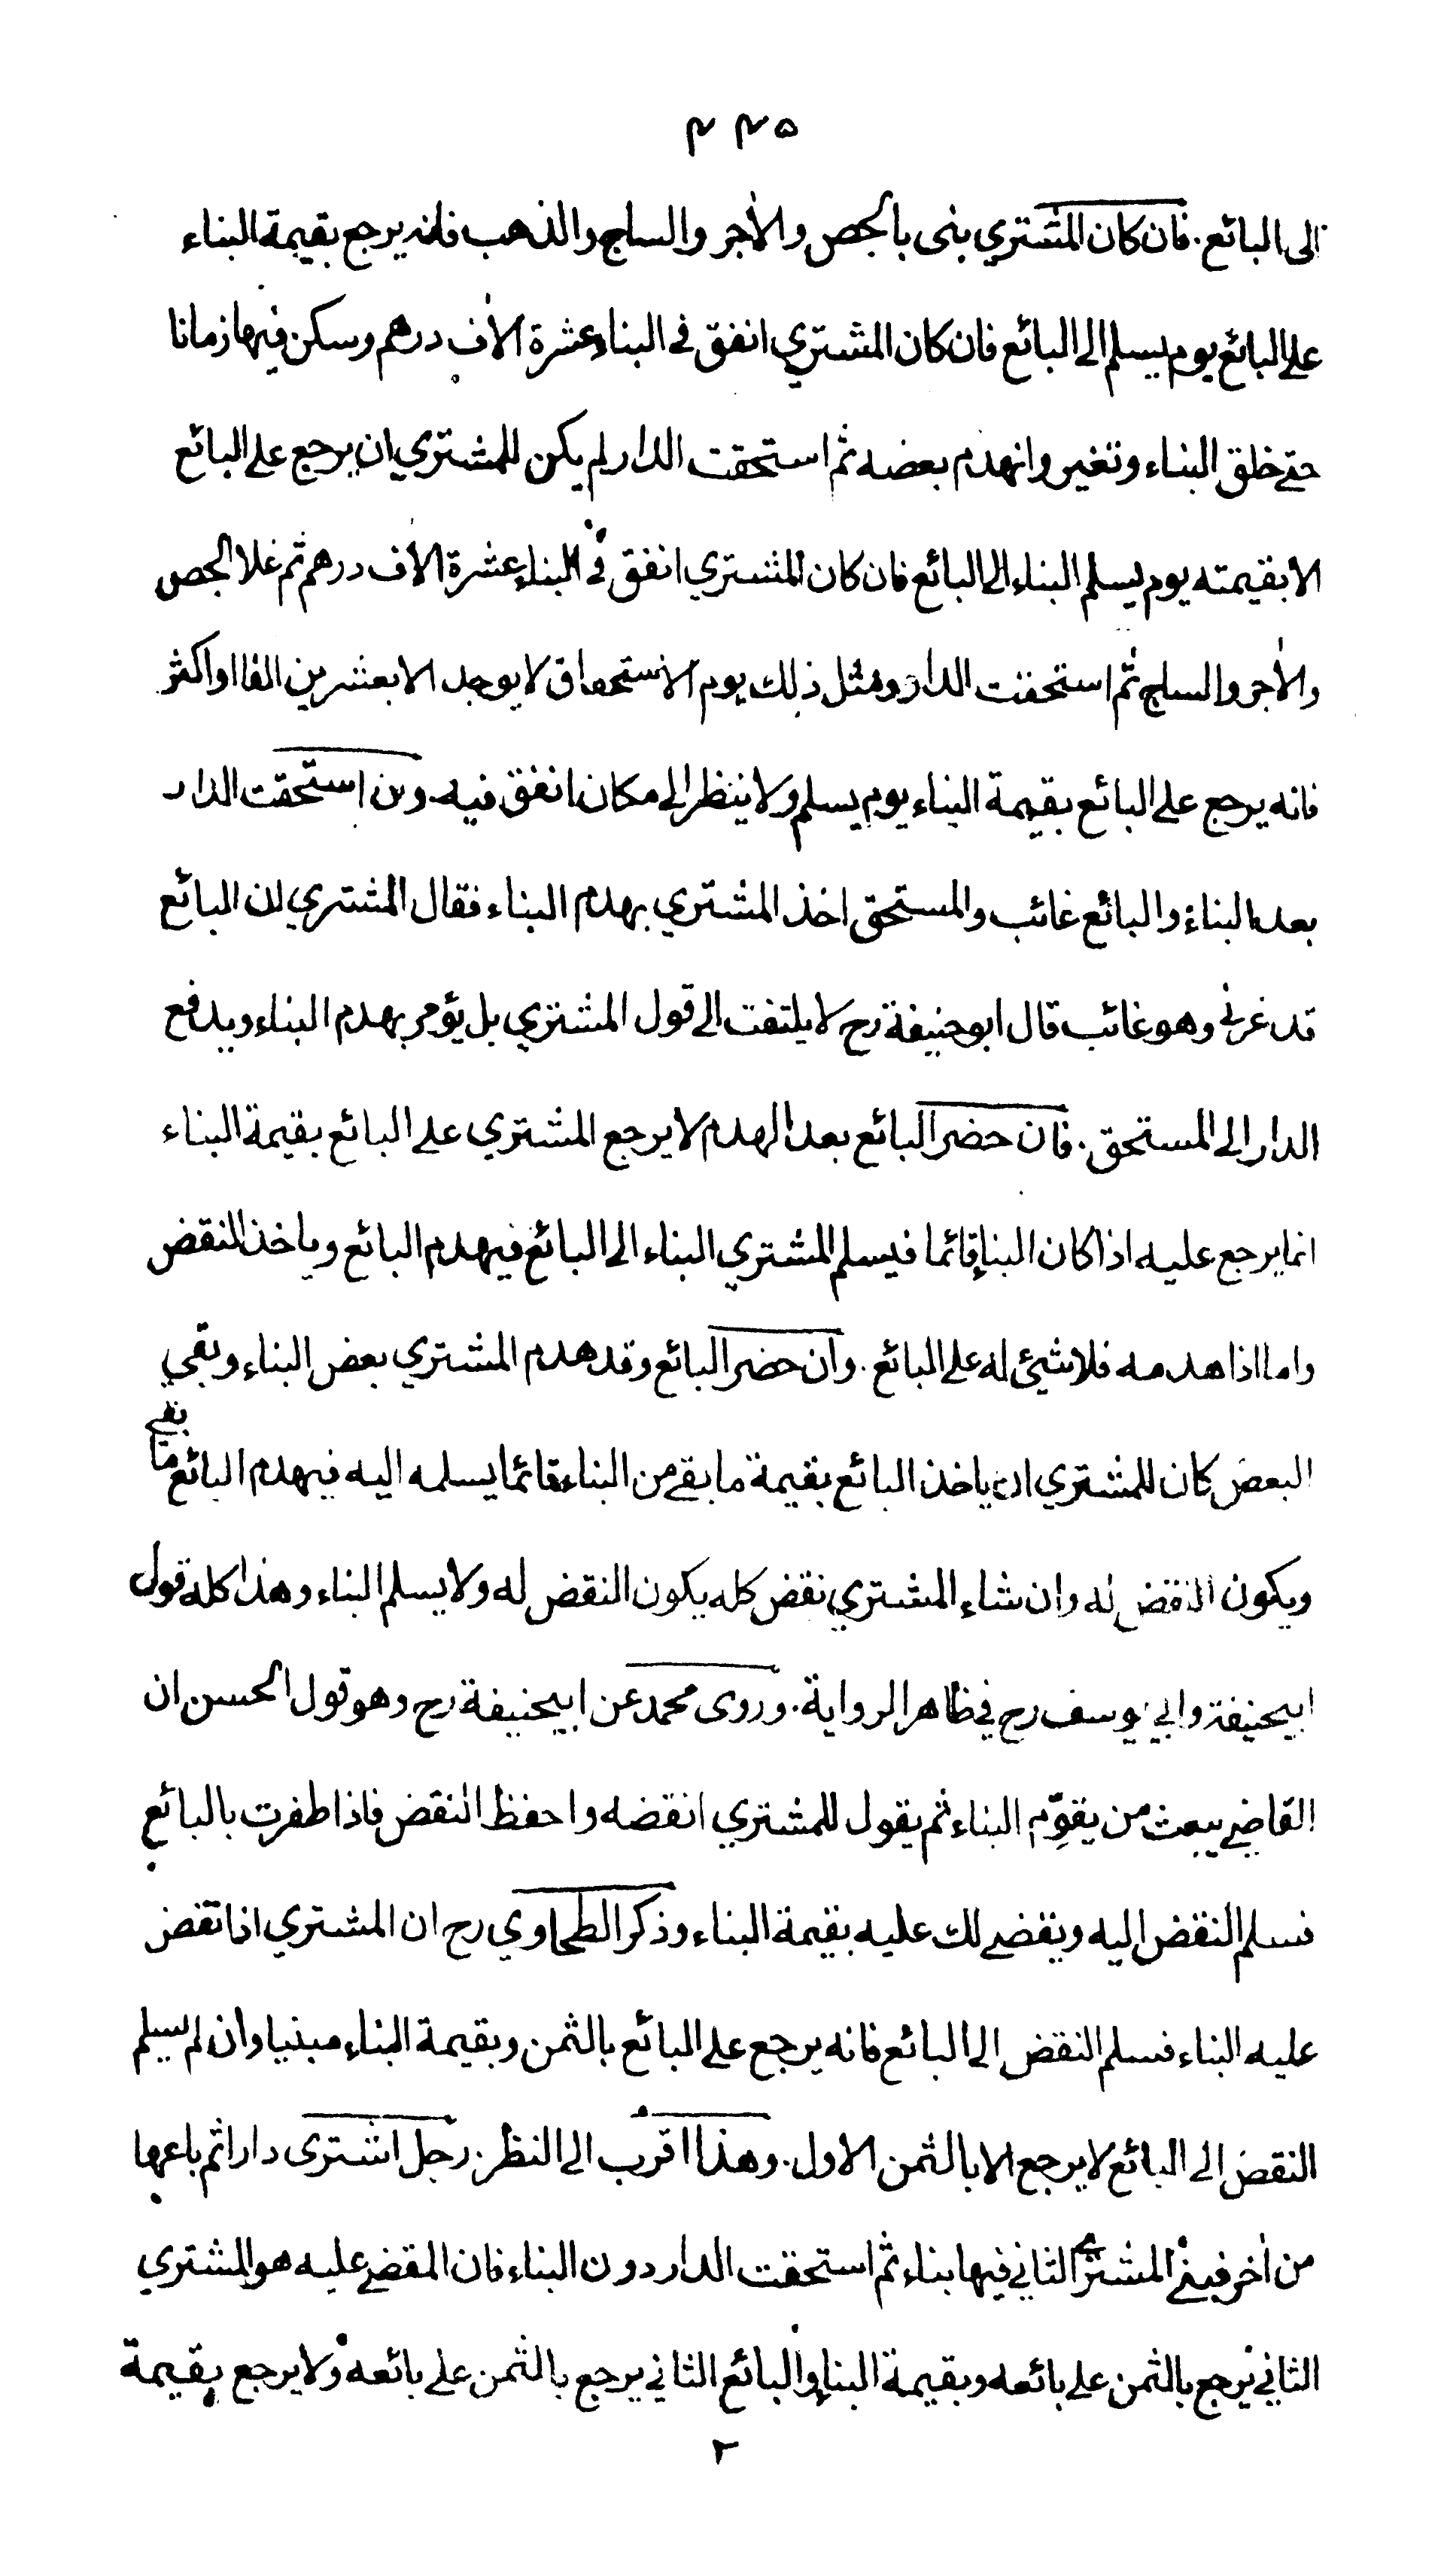 ۴۴۵
الى البائع. فان كان المشتري بنى بالجص والأجر والساج والذهب فانه يرجع بقيمة البناء
على البائع يوم يسلم الى البائع فان كان المشتري انفق في البناء عشرة الأف درهم وسكن فيها زمانا
حتى خلق البناء وتغير وانهدم بعضه ثم استحقت الدار لم يكن للمشتري ان يرجع على البائع
الا بقيمته يوم يسلم البناء الى البائع فان كان المشتري انفق في البناء عشرة الأف درهم ثم غلا الجص
والأجر والساج ثم استحقت الدار ومثل ذلك يوم الاستحقاق لا يوجد الا بعشرين الفا او اكثر
فانه يرجع على البائع بقيمة البناء يوم يسلم ولا ينظر الى مكان انفق فيه. وان استحقت الدار
بعد البناء والبائع غائب والمستحق اخذ المشتري بهدم البناء فقال المشتري ان البائع
قد غرني وهو غائب قال ابو حنيفة رح لا يلتفت الى قول المشتري بل يؤمر بهدم البناء ويدفع
الدار الى المستحق. فان حضر البائع بعد الهدم لا يرجع المشتري على البائع بقيمة البناء
انما يرجع عليه اذا كان البناء قائما فيسلم المشتري البناء الى البائع فيهدم البائع وياخذ النقض
واما اذا هدمه فلا شيئ له على البائع. وان حضر البائع وقد هدم المشتري بعض البناء وبقي
البعض كان للمشتري ان ياخذ البائع بقيمة ما بقي من البناء قائما يسلمه اليه فيهدم البائع ما بقي
ويكون النقض له وان شاء المشتري نقض كله يكون النقض له ولا يسلم البناء وهذا كله قول
ابيحنيفة وابي يوسف رح في ظاهر الرواية. وروى محمد عن ابيحنيفة رح وهو قول الحسن ان
القاضي يبعث من يقوِّم البناء ثم يقول للمشتري انقضه واحفظ النقض فاذا ظفرت بالبائع
فسلم النقض اليه ويقضى لك عليه بقيمة البناء وذكر الطحاوي رح ان المشتري اذا نقض
عليه البناء فسلم النقض الى البائع فانه يرجع على البائع بالثمن وبقيمة البناء مبنيا وان لم يسلم
النقض الى البائع لا يرجع الا بالثمن الاول. وهذا اقرب الى النظر. رجل اشترى دارا ثم باعها
من أخر فبنى المشتري الثاني فيها بناء ثم استحقت الدار دون البناء فان المقضي عليه هو المشتري
الثاني يرجع بالثمن على بائعه وبقيمة البناء والبائع الثاني يرجع بالثمن على بائعه ولا يرجع بقيمة
٢